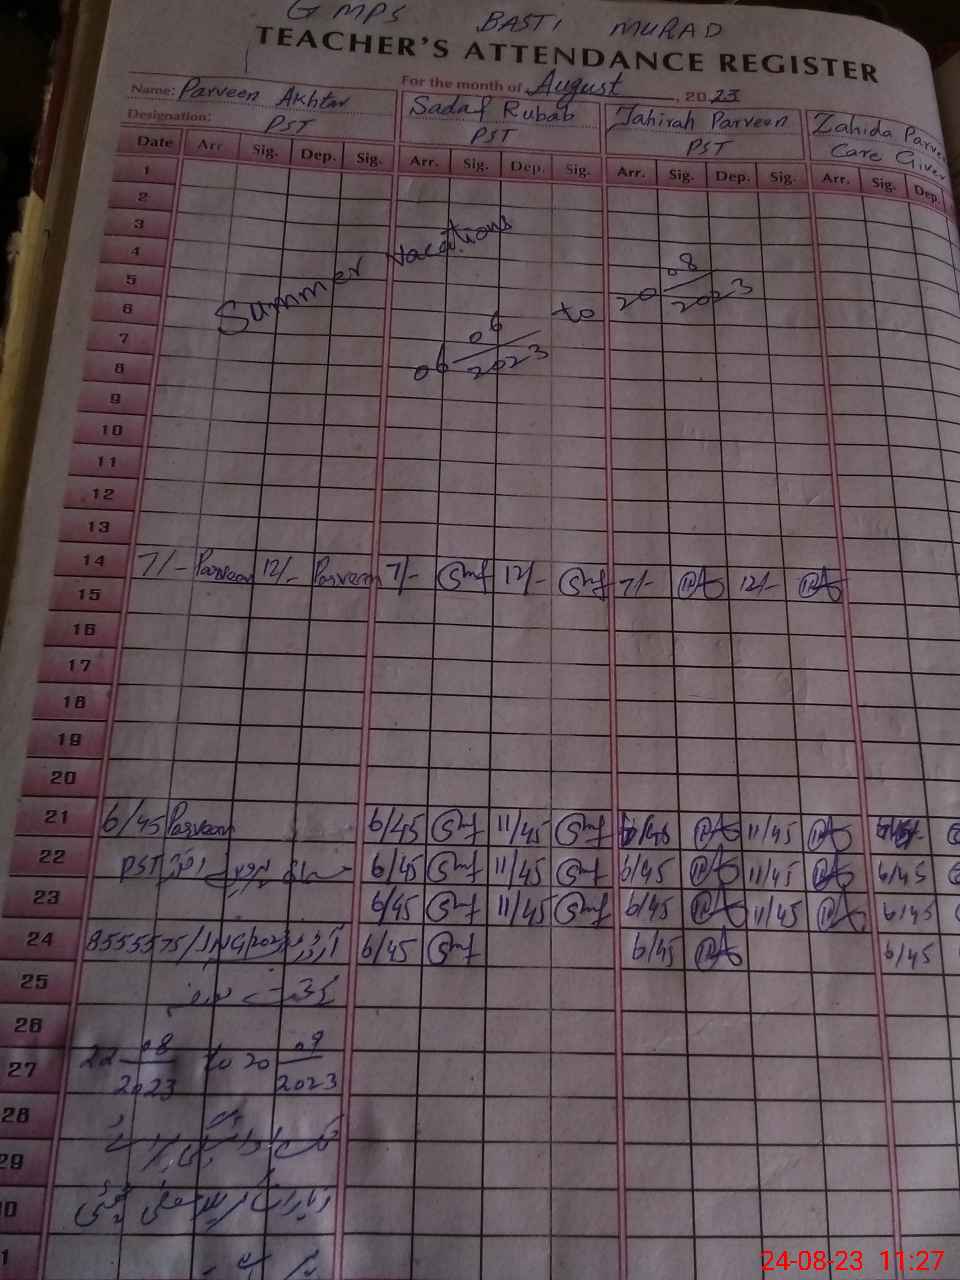 GMPS BASTI MURAD
TEACHER'S ATTENDANCE REGISTER
For the month of August, 2023
Name: Parveen Akhtar Sadaf Rubab Tahirah Parveen Zahida Parve
Designation: PST PST PST Care Giver
Date Arr Sig. Dep. Sig. Arr. Sig. Dep. Sig. Arr. Sig. Dep. Sig. Arr. Sig. Dep.
1
2
3
4
5
6
7
8
Summer Vacations
06 06/2023 to 20 08/2023
9
10
11
12
13
14 7/- Parveen 12/- Parveen 7/- Smf 12/- Smf 7/- 12/-
15
16
17
18
19
20
21 6/45 Parveen 6/45 Smf 11/45 Smf 6/45 11/45
22 PST 6/45 Smf 11/45 Smf 6/45 11/45 6/45
23 6/45 Smf 11/45 Smf 6/45 11/45 6/45
24 8555575/JNG/2023 6/45 Smf 6/45 6/45
25
26
27 22 08/2023 to 20 09/2023
28
29
30
1
24-08-23 11:27